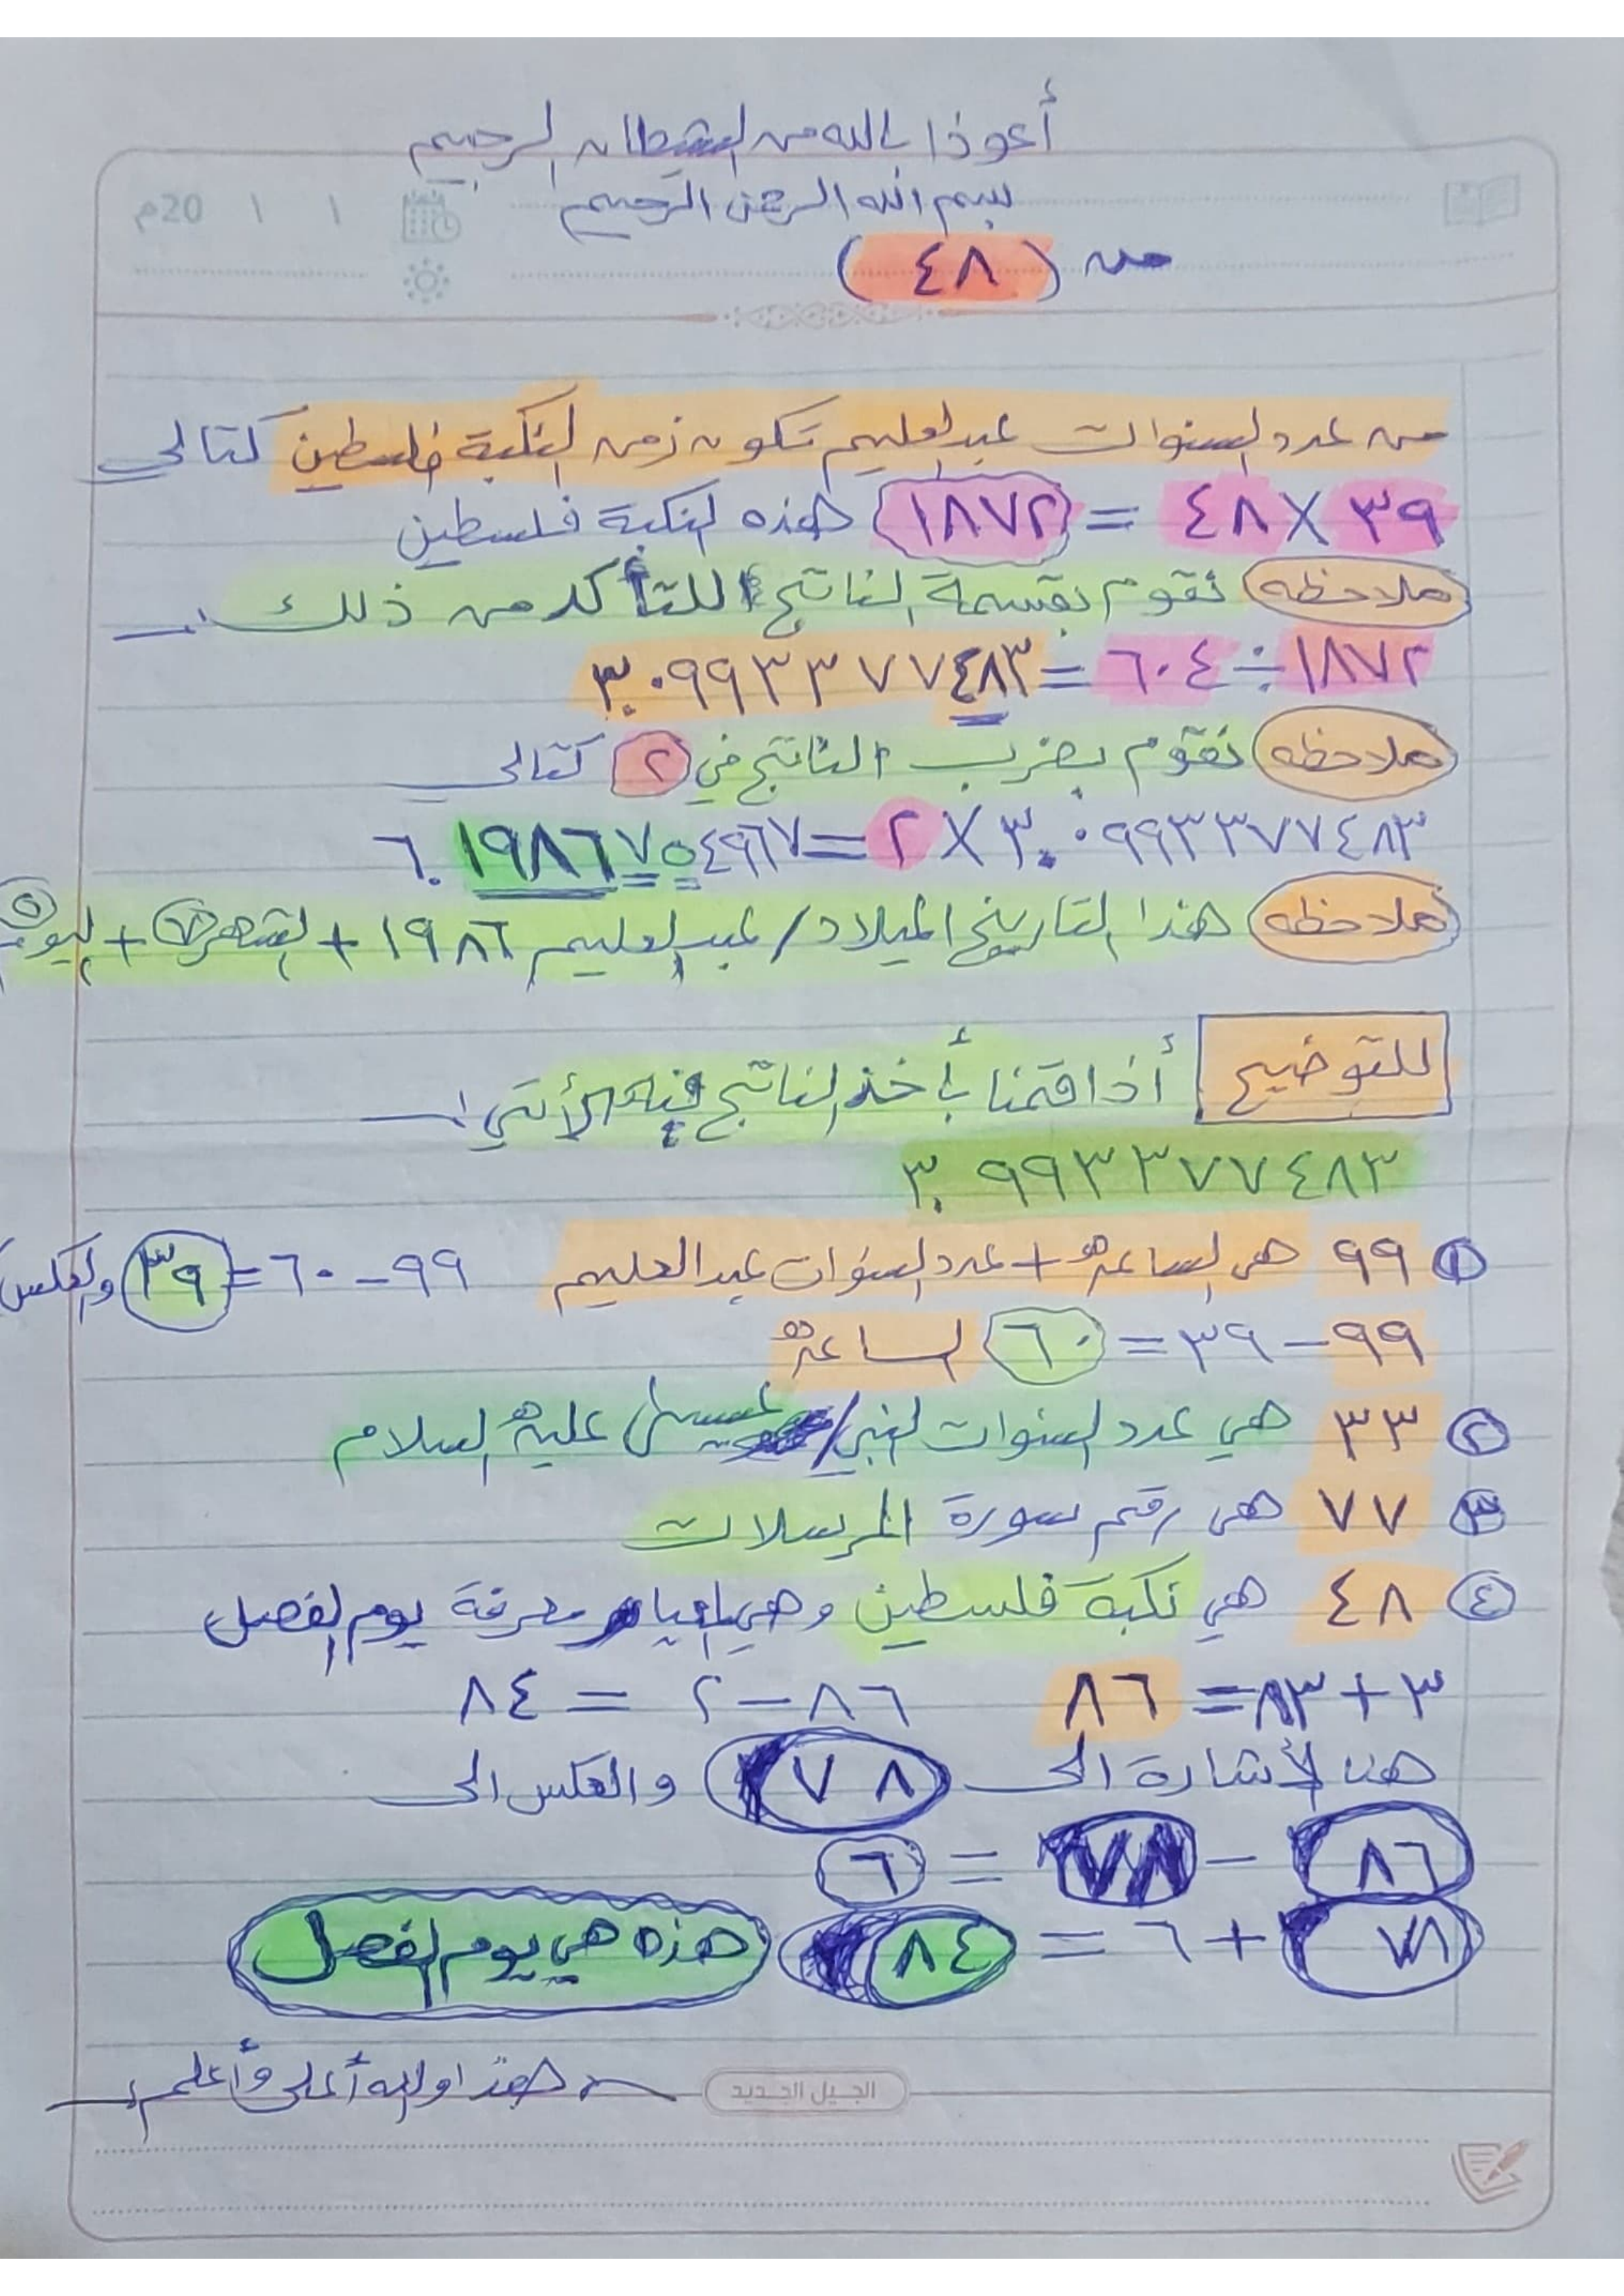 أعوذ بالله من الشيطان الرجيم
بسم الله الرحمن الرحيم
١ ١ 20م
من (٤٨)
من عدد السنوات عبدالعليم تكون زمن النكبة فلسطين كتالي
٣٩ × ٤٨ = ١٨٧٢ هذه النكبة فلسطين
ملاحظه نقوم بقسمة الناتج للتأكد من ذلك :ـ
١٨٧٢ ÷ ٦٠٤ = ٣.٠٩٩٣٣٧٧٤٨٣
ملاحظه نقوم بضرب الناتج في ٢ كتالي
٣.٠٩٩٣٣٧٧٤٨٣ × ٢ = ٦.١٩٨٦٧٥٤٩٦٧
ملاحظه هذا التاريخ الميلاد / عبدالعليم ١٩٨٦ + الشهر ٧ + اليوم ٥
للتوضيح أذا قمنا بأخذ الناتج فيه الأتي :ـ
٣.٩٩٣٣٧٧٤٨٣
١ ٩٩ هي الساعه + عدد السنوات عبدالعليم ٩٩ - ٦٠ = ٣٩ والعكس
٩٩ - ٣٩ = ٦٠ الساعه
٢ ٣٣ هي عدد السنوات النبي / عيسى عليه السلام
٣ ٧٧ هي رقم سورة المرسلات
٤ ٤٨ هي نكبة فلسطين وهي معرفة يوم الفصل
٣ + ٨٣ = ٨٦ ٨٦ - ٢ = ٨٤
هنا لأشارة الى ٧٨ والعكس الى
٨٦ - ٧٨ = ٦
٧٨ + ٦ = ٨٤ هذه هي يوم الفصل
هذا والله أعلى وأعلم
الجيل الجديد